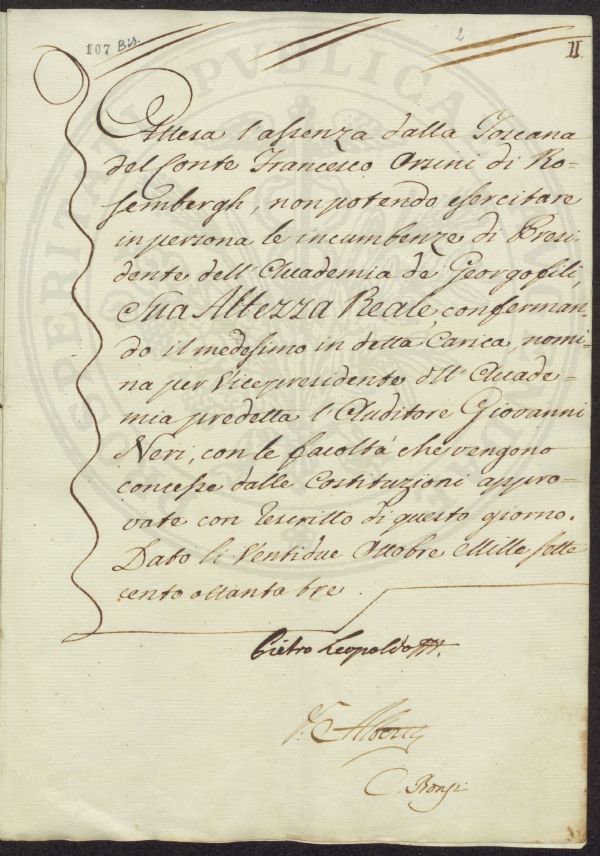 107 Bis.
2
II.
Attesa l'assenza dalla Toscana
del Conte Francesco Orsini di Ro=
sembergh, non potendo esercitare
in persona le incumbenze di Presi=
dente dell'Accademia de Georgofili,
Sua Altezza Reale, conferman=
do il medesimo in detta Carica, nomi=
na per Vicepresidente dell'Accade=
mia predetta l'Auditore Giovanni
Neri, con le facoltà che vengono
concesse dalle Costituzioni appro=
vate con rescritto di questo giorno.
Dato li Ventidue Ottobre Mille sette
cento ottanta tre.
Pietro Leopoldo
V. Alberti
PROSPERITATI PUBLICAE